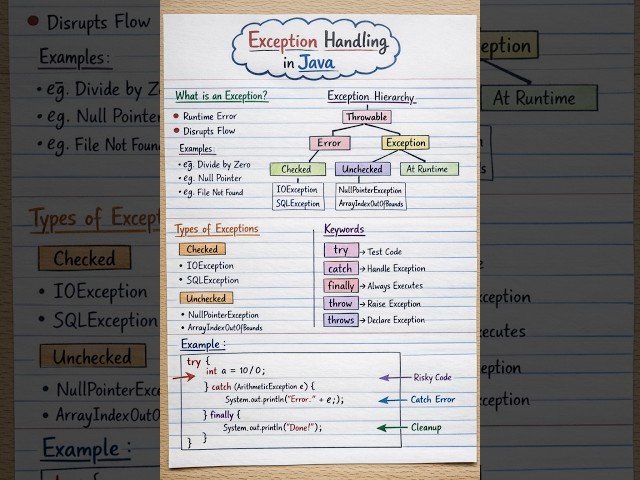 Exception Handling
in Java
What is an Exception?
• Runtime Error
• Disrupts Flow
Examples:
• eg. Divide by Zero
• eg. Null Pointer
• eg. File Not Found
Exception Hierarchy
Throwable
Error
Exception
Checked
Unchecked
At Runtime
IOException
SQLException
NullPointerException
ArrayIndexOutOfBounds
Types of Exceptions
Checked
• IOException
• SQLException
Unchecked
• NullPointerException
• ArrayIndexOutOfBounds
Keywords
try → Test Code
catch → Handle Exception
finally → Always Executes
throw → Raise Exception
throws → Declare Exception
Example:
try {
int a = 10/0;
} catch (ArithmeticException e) {
System.out.println("Error." + e;);
} finally {
System.out.println("Done!");
}
}
Risky Code
Catch Error
Cleanup
• Disrupts Flow
Examples:
• eg. Divide by Z
• eg. Null Pointer
• eg. File Not Foun
Types of Excepti
Checked
• IOException
• SQLException
Unchecked
• NullPointerExce
• ArrayIndexOutO
Example:
eption
At Runtime
ption
ecutes
eption
ception